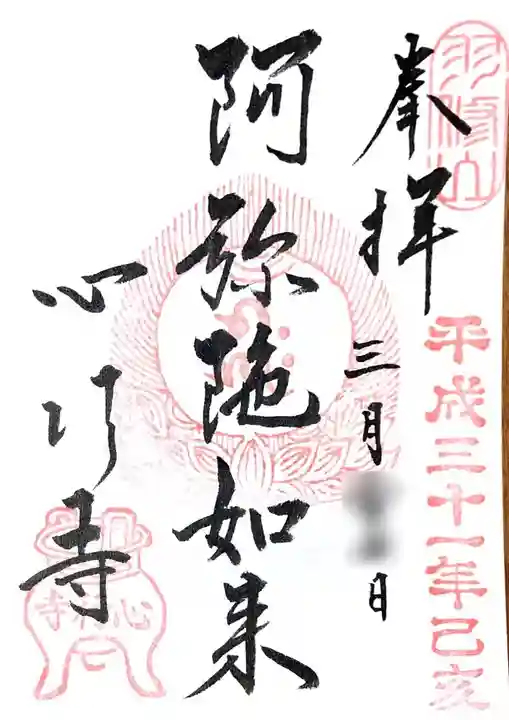 羽修山
平成三十一年己亥
奉拝
三月 日
阿弥陀如来
心行寺
心行寺